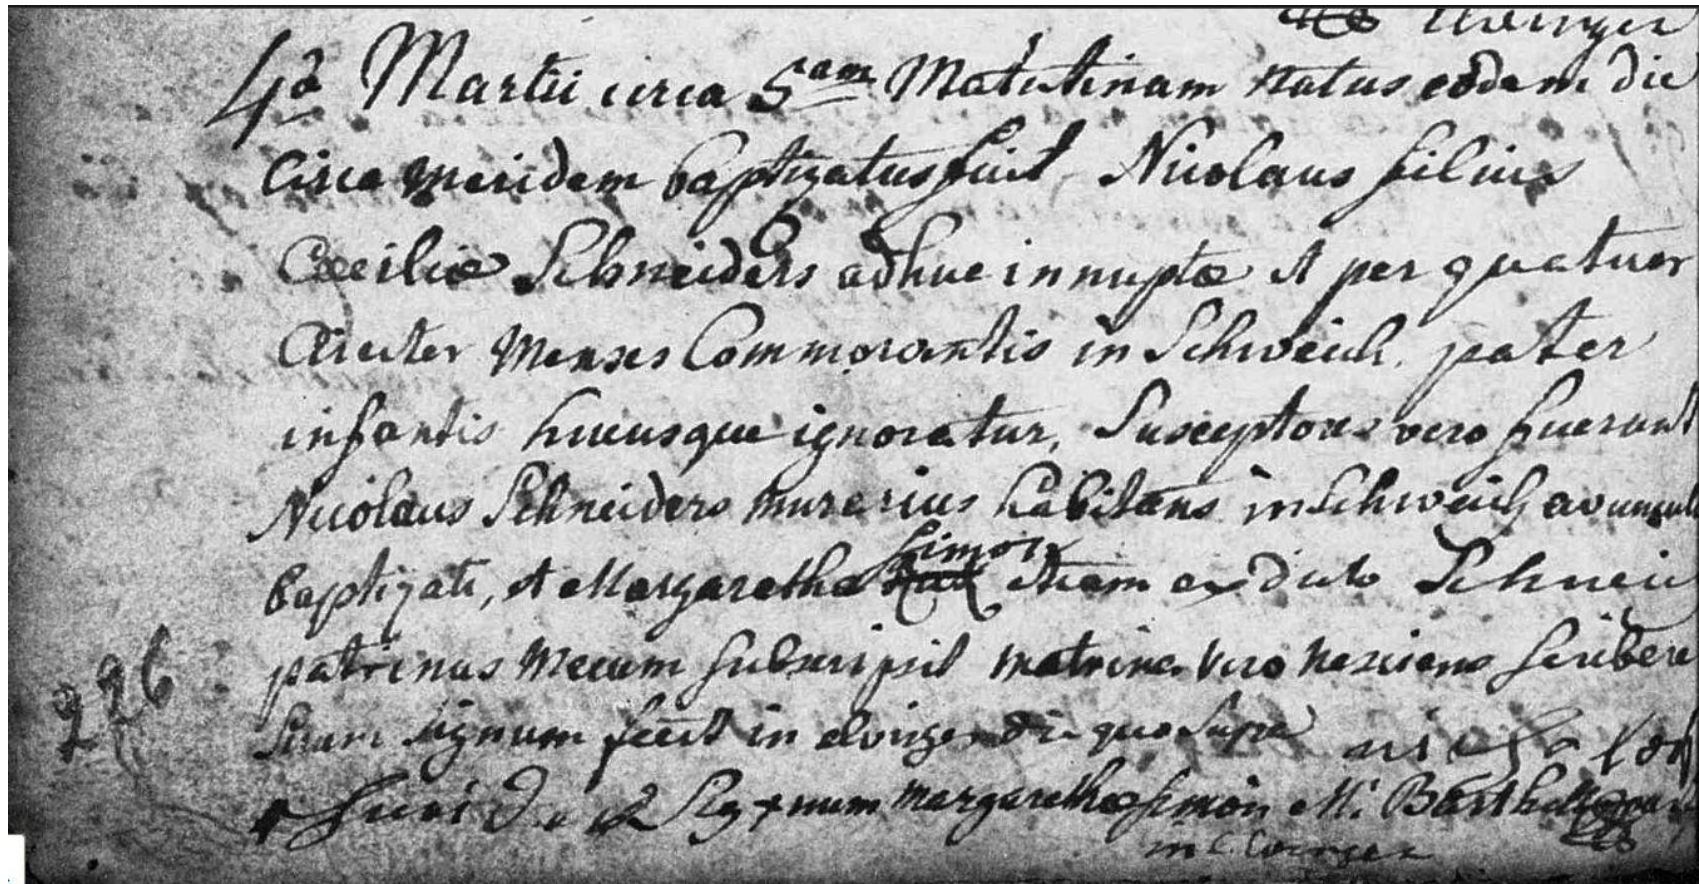 Elvinger
4ta Martii circa 5am Matutinam natus eodem die
circa meridem baptizatus fuit Nicolaus filius
Cæciliæ Schneiders adhuc innuptæ et per quatuor
circiter menses Commorantis in Schweich. pater
infantis hucusque ignoratur, Susceptores vero fuerunt
Nicolaus Schneiders murarius habitans in Schweich avuncul
baptizati, et Margaretha Simon etiam ex dicto Schwei
patrinus mecum subscripsit matrina vero nesciens scribere
suum signum fecit in elvinge die quo supra nicola
Sig+num margarethæ simon M: Barthel
in Elvinger
226